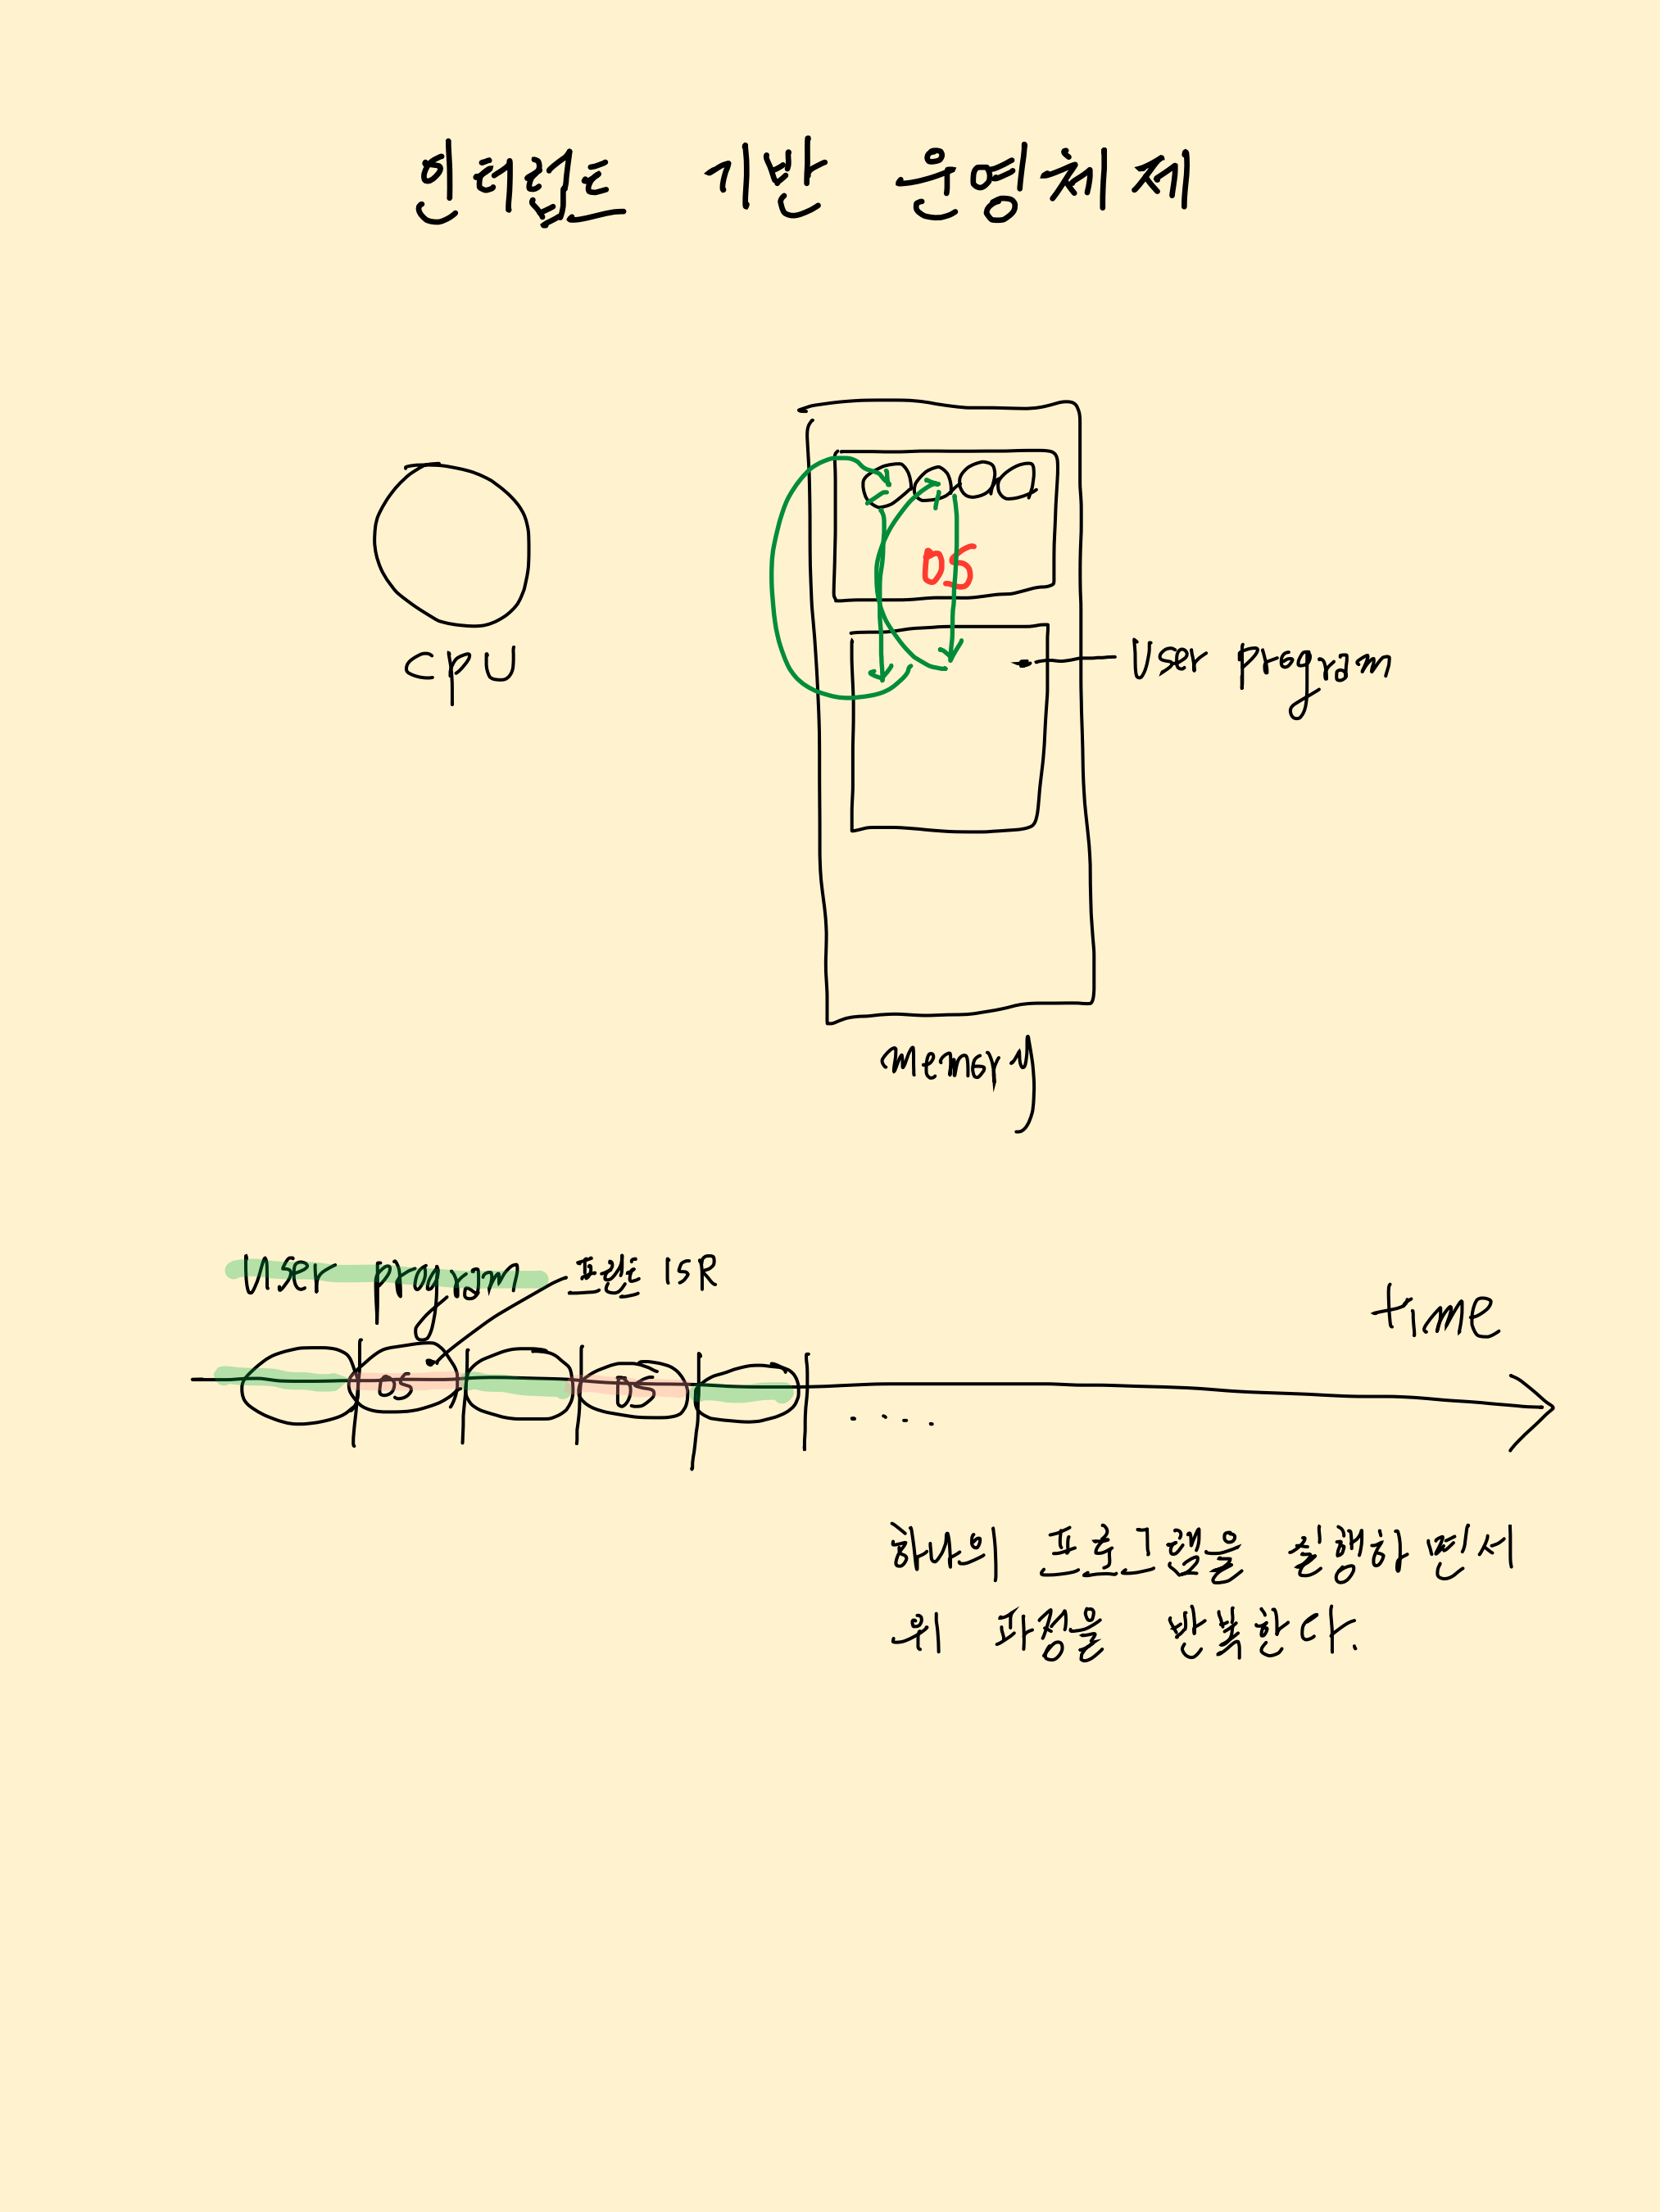 인터럽트 기반 운영체제
OS
CPU
User program
Memory
User program
프린트 ISR
time
OS
OS
....
하나의 프로그램을 실행하면서
위 과정을 반복한다.